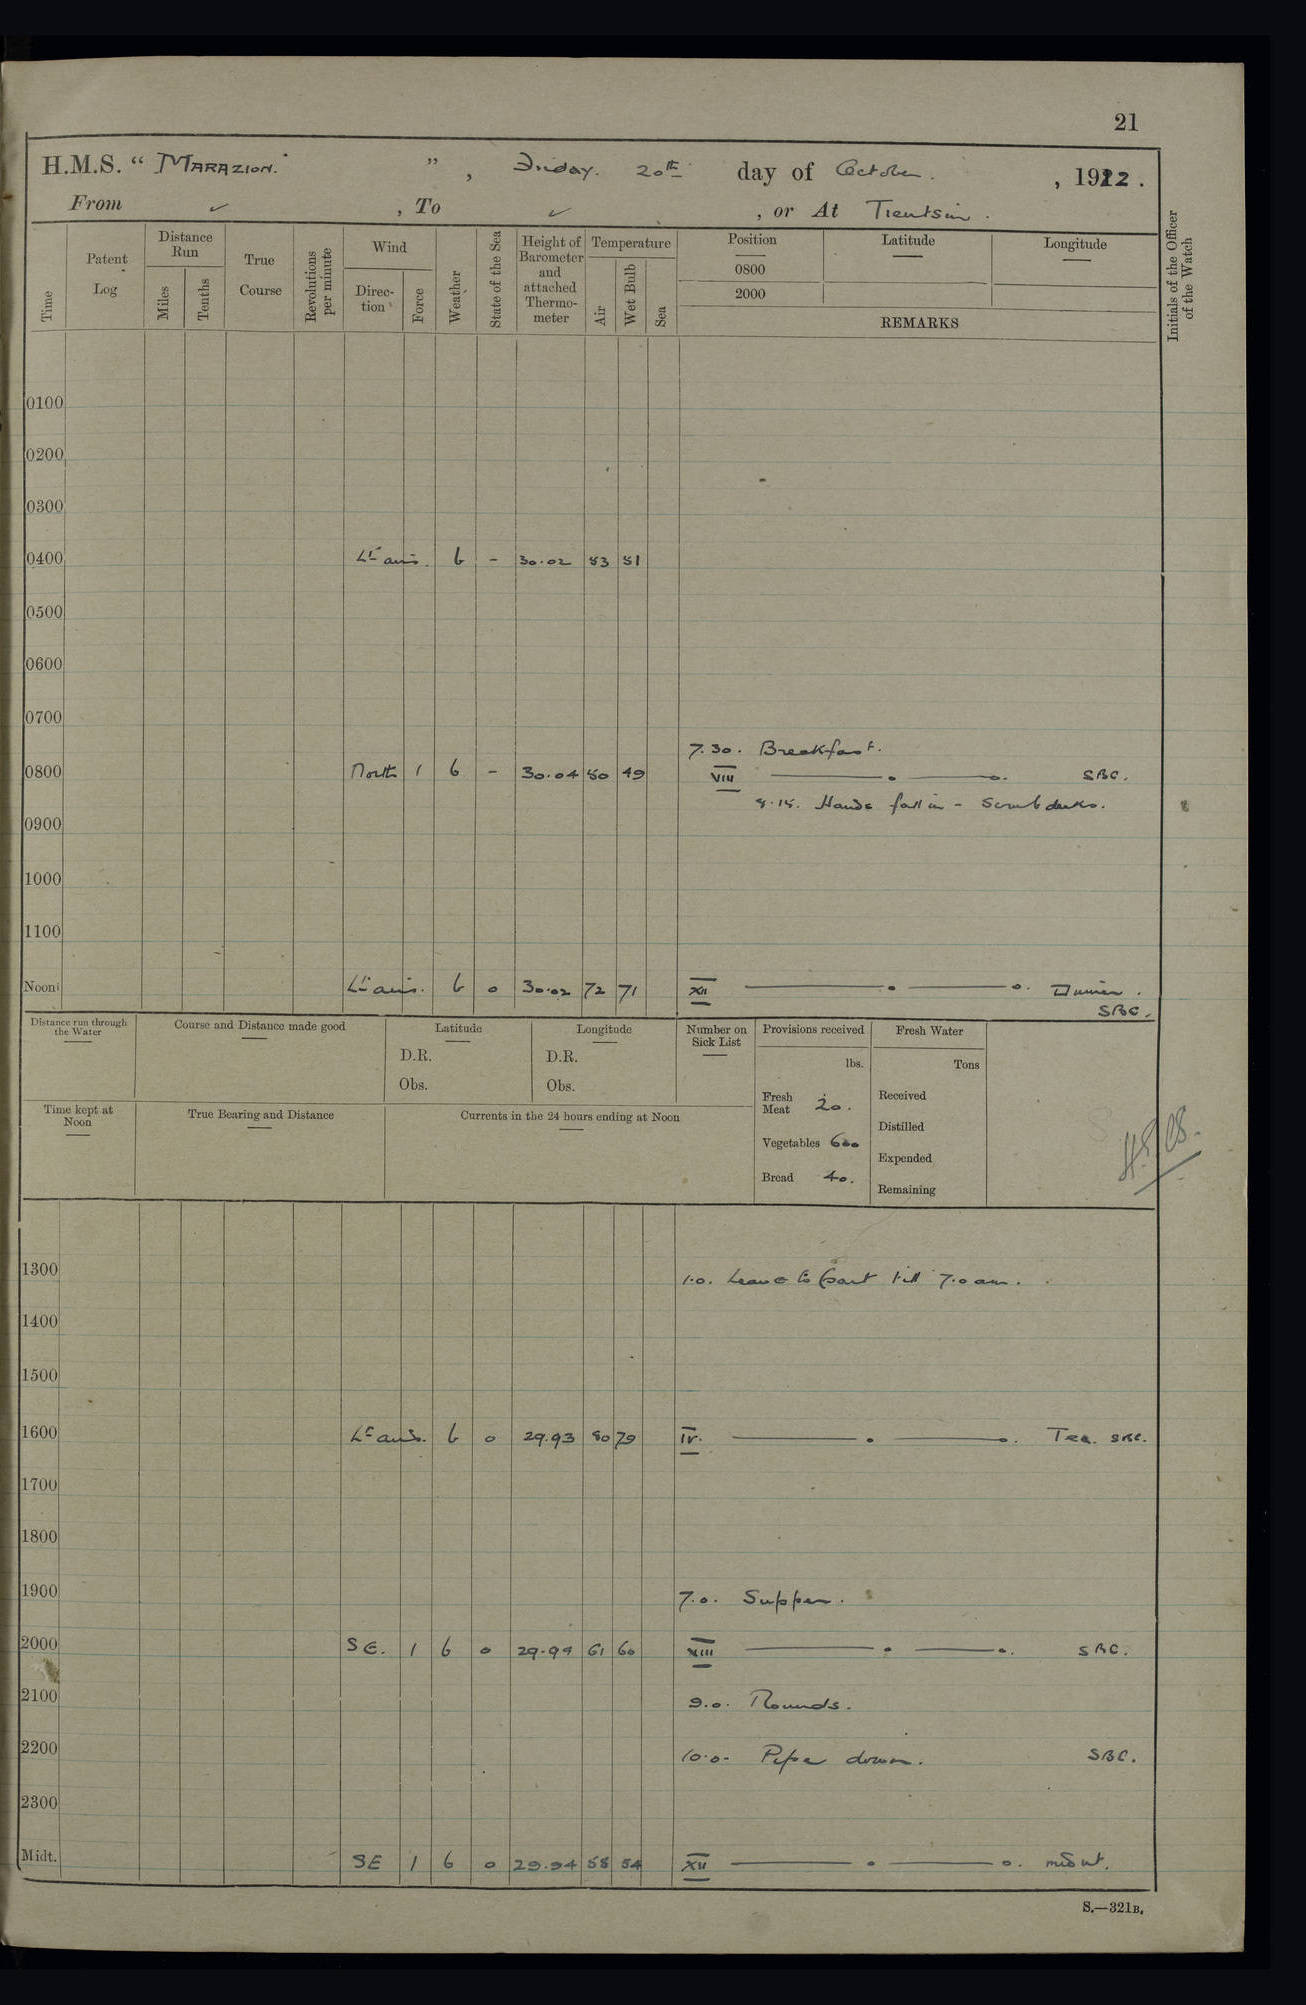 21
H.M.S. “ MARAZION. ” , Friday. 20th day of October. , 1922.
From ✓ , To ✓ , or At Tientsin.
Time Patent Log Distance Run Miles Tenths True Course Revolutions per minute Wind Direc-tion Force Weather State of the Sea Height of Barometer and attached Thermo-meter Temperature Air Wet Bulb Sea Position 0800 2000 Latitude Longitude
REMARKS
Initials of the Officer of the Watch
0100
0200
0300
0400 Lt airs. b - 30.02 53 51
0500
0600
0700
7.30. Breakfast.
0800 North 1 b - 30.04 50 49 VIII SBC.
8.15. Hands fall in - Scrub decks.
0900
1000
1100
Noon Lt airs. b 0 30.02 72 71 XII Dinner.
SBC.
Distance run through the Water Course and Distance made good Latitude Longitude Number on Sick List Provisions received Fresh Water
D.R. D.R. lbs. Tons
Obs. Obs.
Fresh Meat 20. Received
Time kept at Noon True Bearing and Distance Currents in the 24 hours ending at Noon
Distilled
Vegetables 600
Expended
Bread 40.
Remaining
1300 1.0. Leave to part till 7.0 am.
1400
1500
1600 Lt airs. b 0 29.93 80 79 IV. Tea. SBC.
1700
1800
1900 7.0. Supper.
2000 SE. 1 b 0 29.94 61 60 VIII SBC.
2100 9.0. Rounds.
2200 10.0. Pipe down. SBC.
2300
Midt. SE 1 b 0 29.94 55 54 XII
S.—321B.